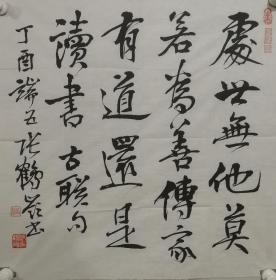 處世無他莫
若為善傳家
有道還是
讀書 古聯句
丁酉端五張鶴岩書